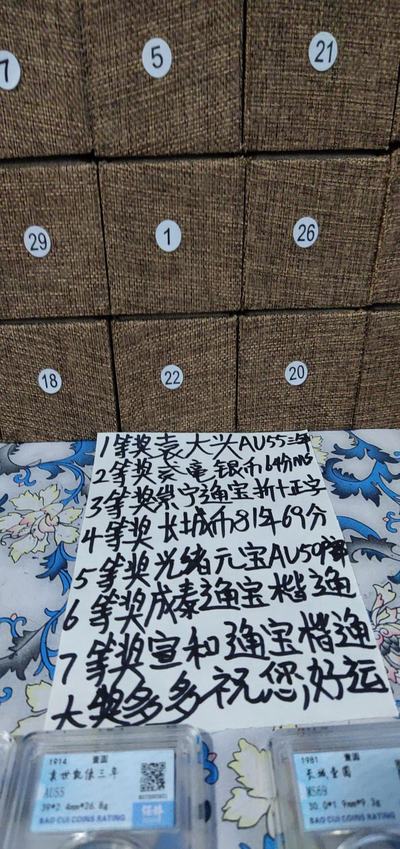 7
5
21
29
1
26
18
22
20
1等奖袁大头AU55三年
2等奖 龙银币64分MS
3等奖崇宁通宝折十正字
4等奖长城币81年69分
5等奖光绪元宝AU50
6等奖咸泰通宝楷通
7等奖宣和通宝楷通
大奖多多祝您好运
1914 壹圆
袁世凯像三年
AU55
39*2.4mm*26.8g
BAO CUI COINS RATING
1981 壹圆
长城壹圆
MS69
30.0*1.9mm*9.3g
BAO CUI COINS RATING